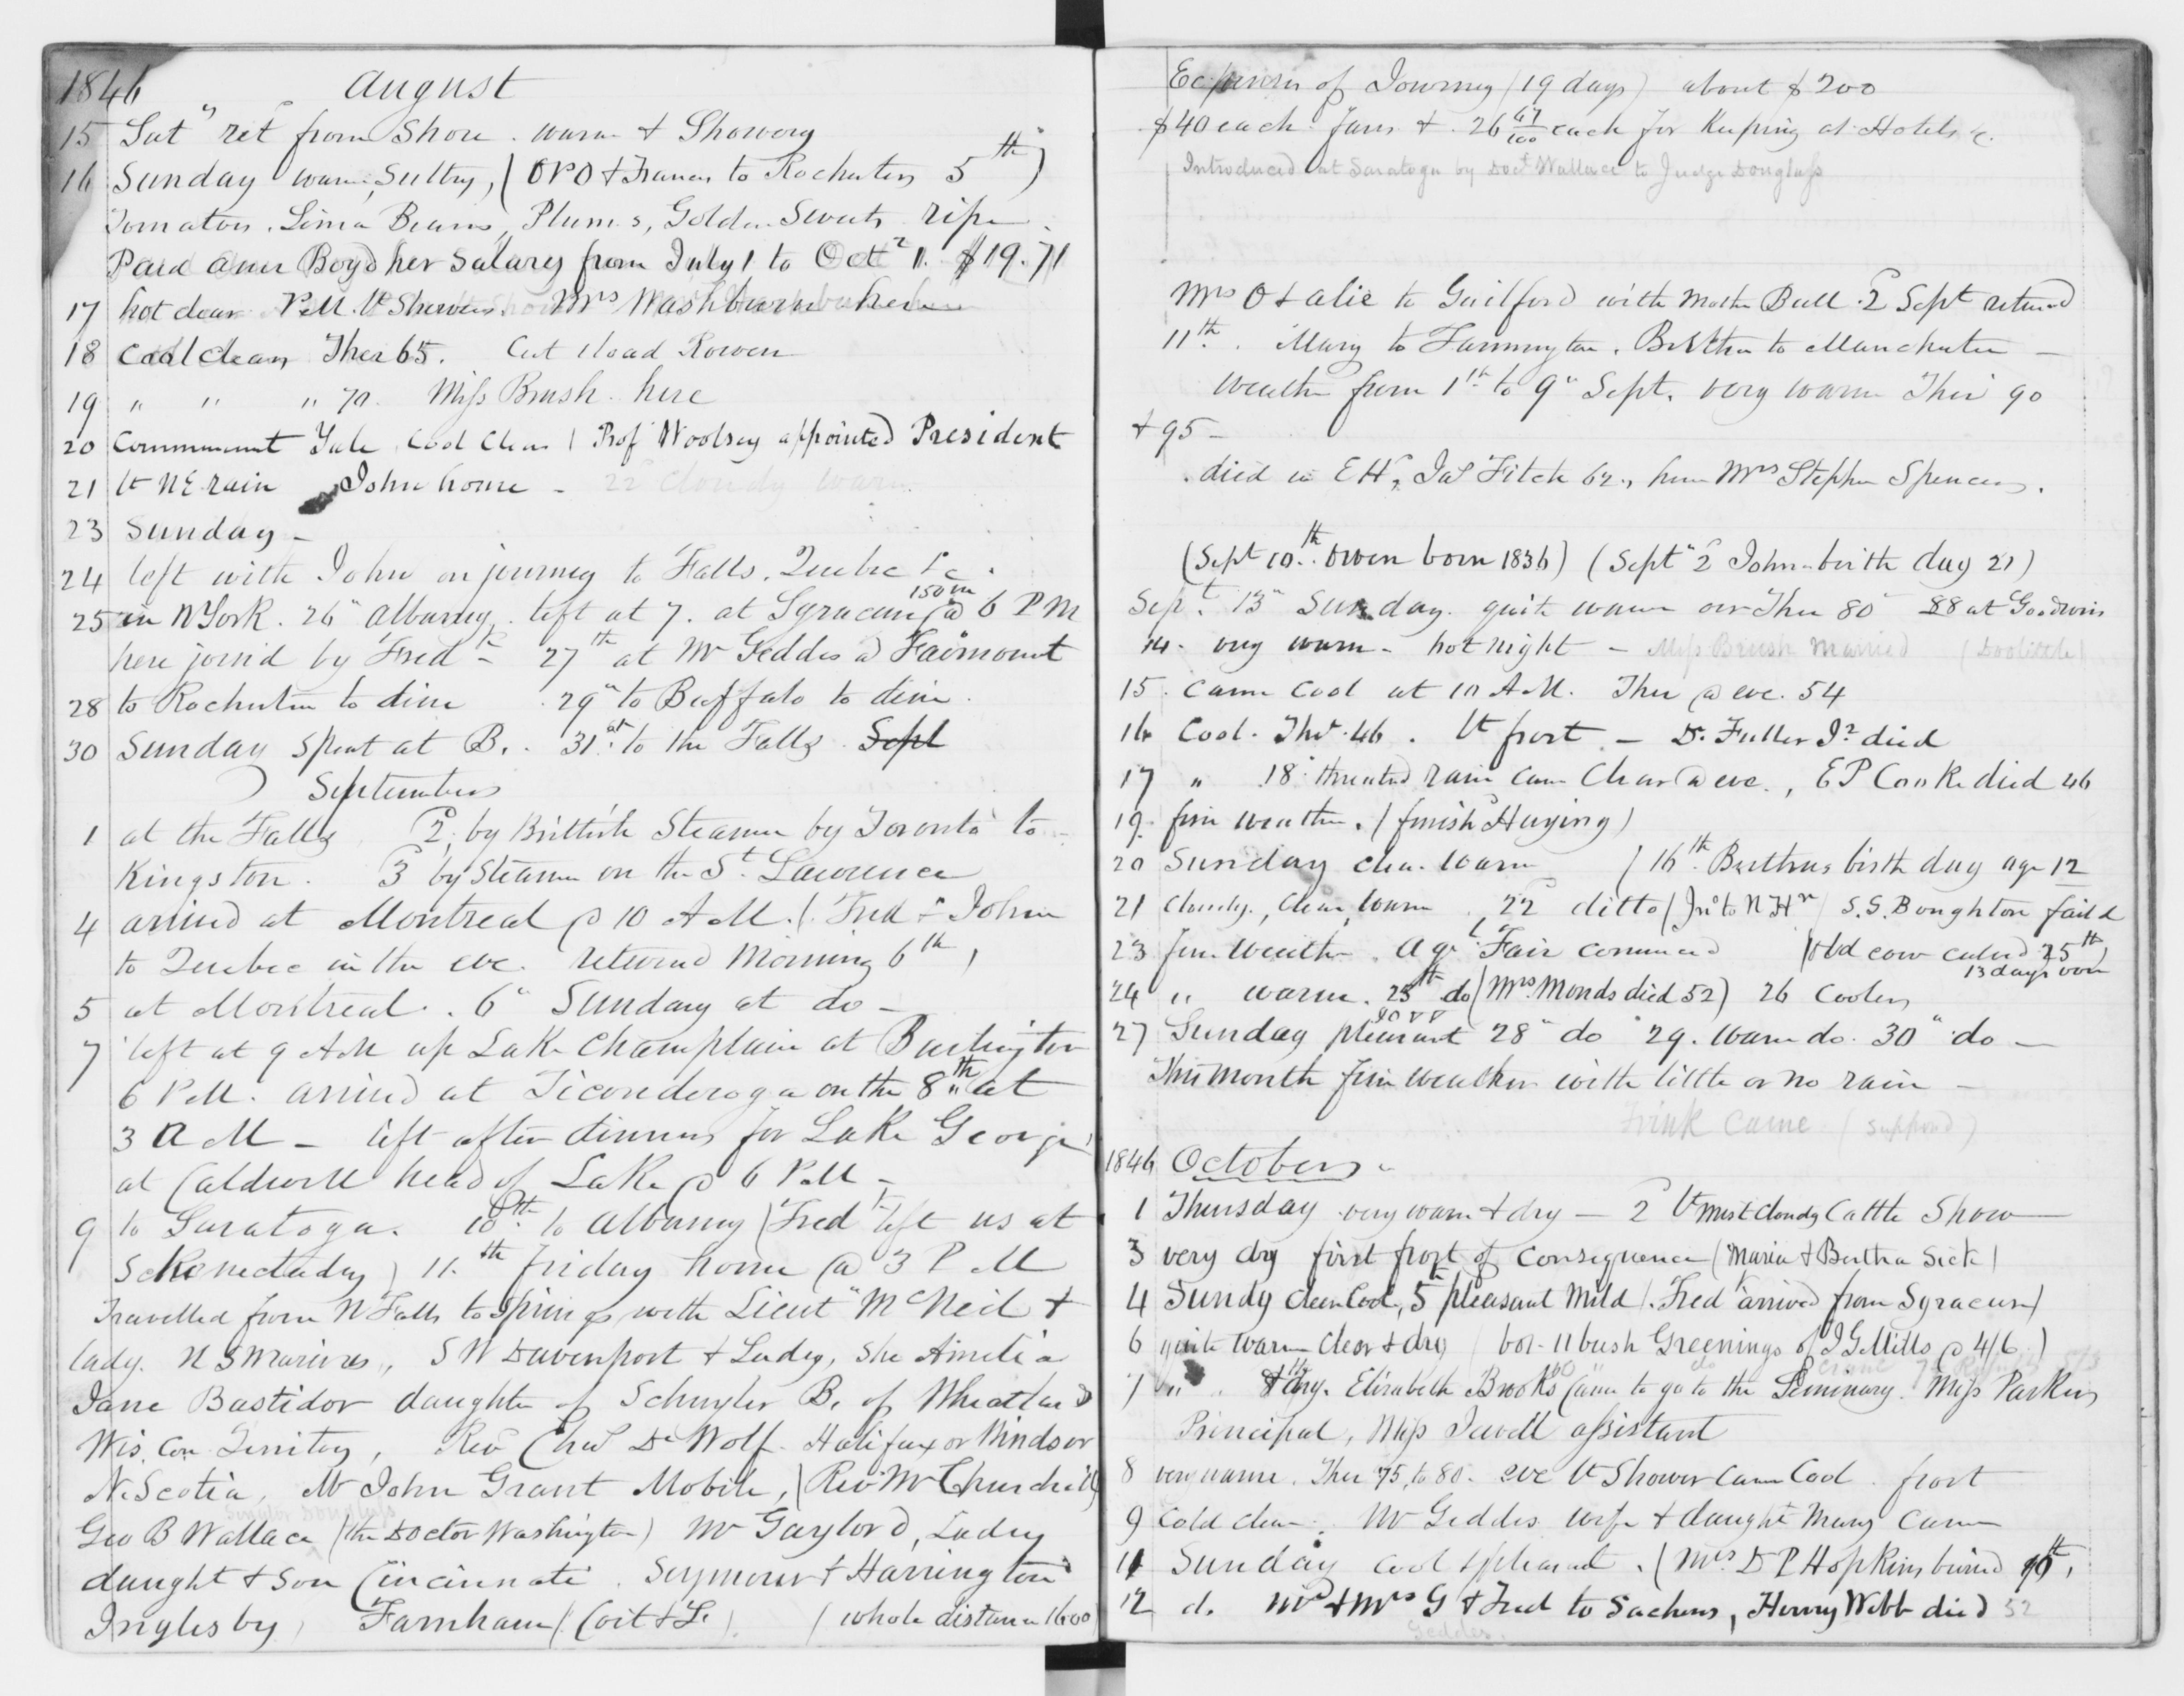 1846 August
15 Sat" ret from Shore. warm & Showery
16 Sunday warm, Sultry, (OPO & Frances to Rochester 5th)
Tomatoes, Lima Beans, Plums, Golden Sweets ripe.
Paid Ann Boyd her Salary from July 1 to Oct 1. $19.71
17 hot clear P.M. lt Showers. Mrs Washburn here
18 Cool clear Ther 65. Cut 1 load Rowen
19 " " " 70. Miss Brush here
20 Commencement Yale Cool Clear / Prof Woolsey appointed President
21 lt NE rain John home - 22 Cloudy warm
23 Sunday -
24 left with John on journey to Falls, Quebec &c.
25 in N York. 26" Albany, left at 7. at Syracuse 150 m @ 6 PM
here join'd by Fredk - 27th at Mr Geddes @ Fairmount
28 to Rochester to dine 29" to Buffalo to dine.
30 Sunday Spent at B. 31st to the Falls. Sept
September
1 at the Falls 2d by Brittish Steamer by Toronto to
Kingston. 3d by Steamer on the St Lawrence
4 arrived at Montreal @ 10 AM. (Fred & John
to Quebec in the eve. returned Morning 6th)
5 at Montreal. 6" Sunday at do -
7 left at 9 AM up Lake Champlain at Burlington
6 P.M. arrived at Ticonderoga on the 8th at
3 A M - left after dinner for Lake George
at Caldwell head of Lake @ 6 P.M -
9 to Saratoga. 10th to Albany (Fredk left us at
Schenectady) 11th friday home @ 3 P M
Travelled from N Falls to Springs with Lieut McNeil &
lady. U S Marines, S W Davenport & Lady, She Amelia
Jane Bastidor daughter of Schuyler B. of Wheatland
Wis. Con Territory, Rev Chas De Wolf Halifax or Windsor
N. Scotia, Mr John Grant Mobile, (Rev Mr Churchill)
Geo B Wallace (the Doctor Washington) Mr Gaylord, Lady
daught & Son Cincinnati. Seymour & Harrington
Inglesby, Farnham / Coit & L. (whole distance 1600
Expenses of Journey (19 days) about $200
$40 each fares & 26 67/100 each for Keeping at Hotels &c.
Introduced at Saratoga by Doct Wallace to Judge Douglass
Mrs O & Alie to Guilford with Mother Bull 2d Sept returned
11th. Mary to Farmington. Bertha to Manchester -
weather from 1st to 9" Sept. very warm Ther 90
& 95 -
died in EH, Jas Fitch 62, here Mrs Stephen Spencer.
(Sept 10th Owen born 1836) (Sept 2d John birth day 21)
Sept 13" Sunday. quite warm our Ther 80 88 at Goodwins
14. very warm - hot night - Miss Brush Married (Doolittle)
15. Came Cool at 10 A.M. Ther @ eve. 54
16 Cool. Ther. 46. lt frost - D. Fuller Jr died
17 " 18" threatend rain Came Clear @ eve., E P Cooke died 46
19. fine weather. (finish'd Haying)
20 Sunday clear warm (16th Berthas birth day age 12
21 Cloudy, Clear, warm 22d ditto (Jno to N Hn) S.S. Boughton fail'd
23 fine weather. Agl Fair commenced (Old cow calved 25th
13 days over
24 " warm. 25th do (Mrs Monds died 52) 26 Cooler
27 Sunday pleasant 28" do 29. warm do. 30" do -
This month fine weather with little or no rain -
Frink came (suppos'd)
1846 October
1 Thursday very warm & dry - 2d lt mist Cloudy Cattle Show
3 very dry first frost of Consequence (Maria & Bertha Sick)
4 Sundy clear Cool, 5th pleasant Mild (Fredk arrived from Syracuse)
6 quite warm clear & dry (bot 11 bush Greenings of J G Mills @ 4/6)
7 " " & dry. Elizabeth Brooks Came to go to the Seminary. Miss Parker
Principal, Miss Jewell assistant
8 very warm. Ther 75 to 80. eve lt Shower Came Cool frost
9 Cold clear. Mr Geddes wife & daught Mary Came
11 Sunday cool & pleasant. (Mrs D P Hopkins buried 10th,
12 do. Mr & Mrs G & Fred to Sachems, Henry Webb died 52
Geddes